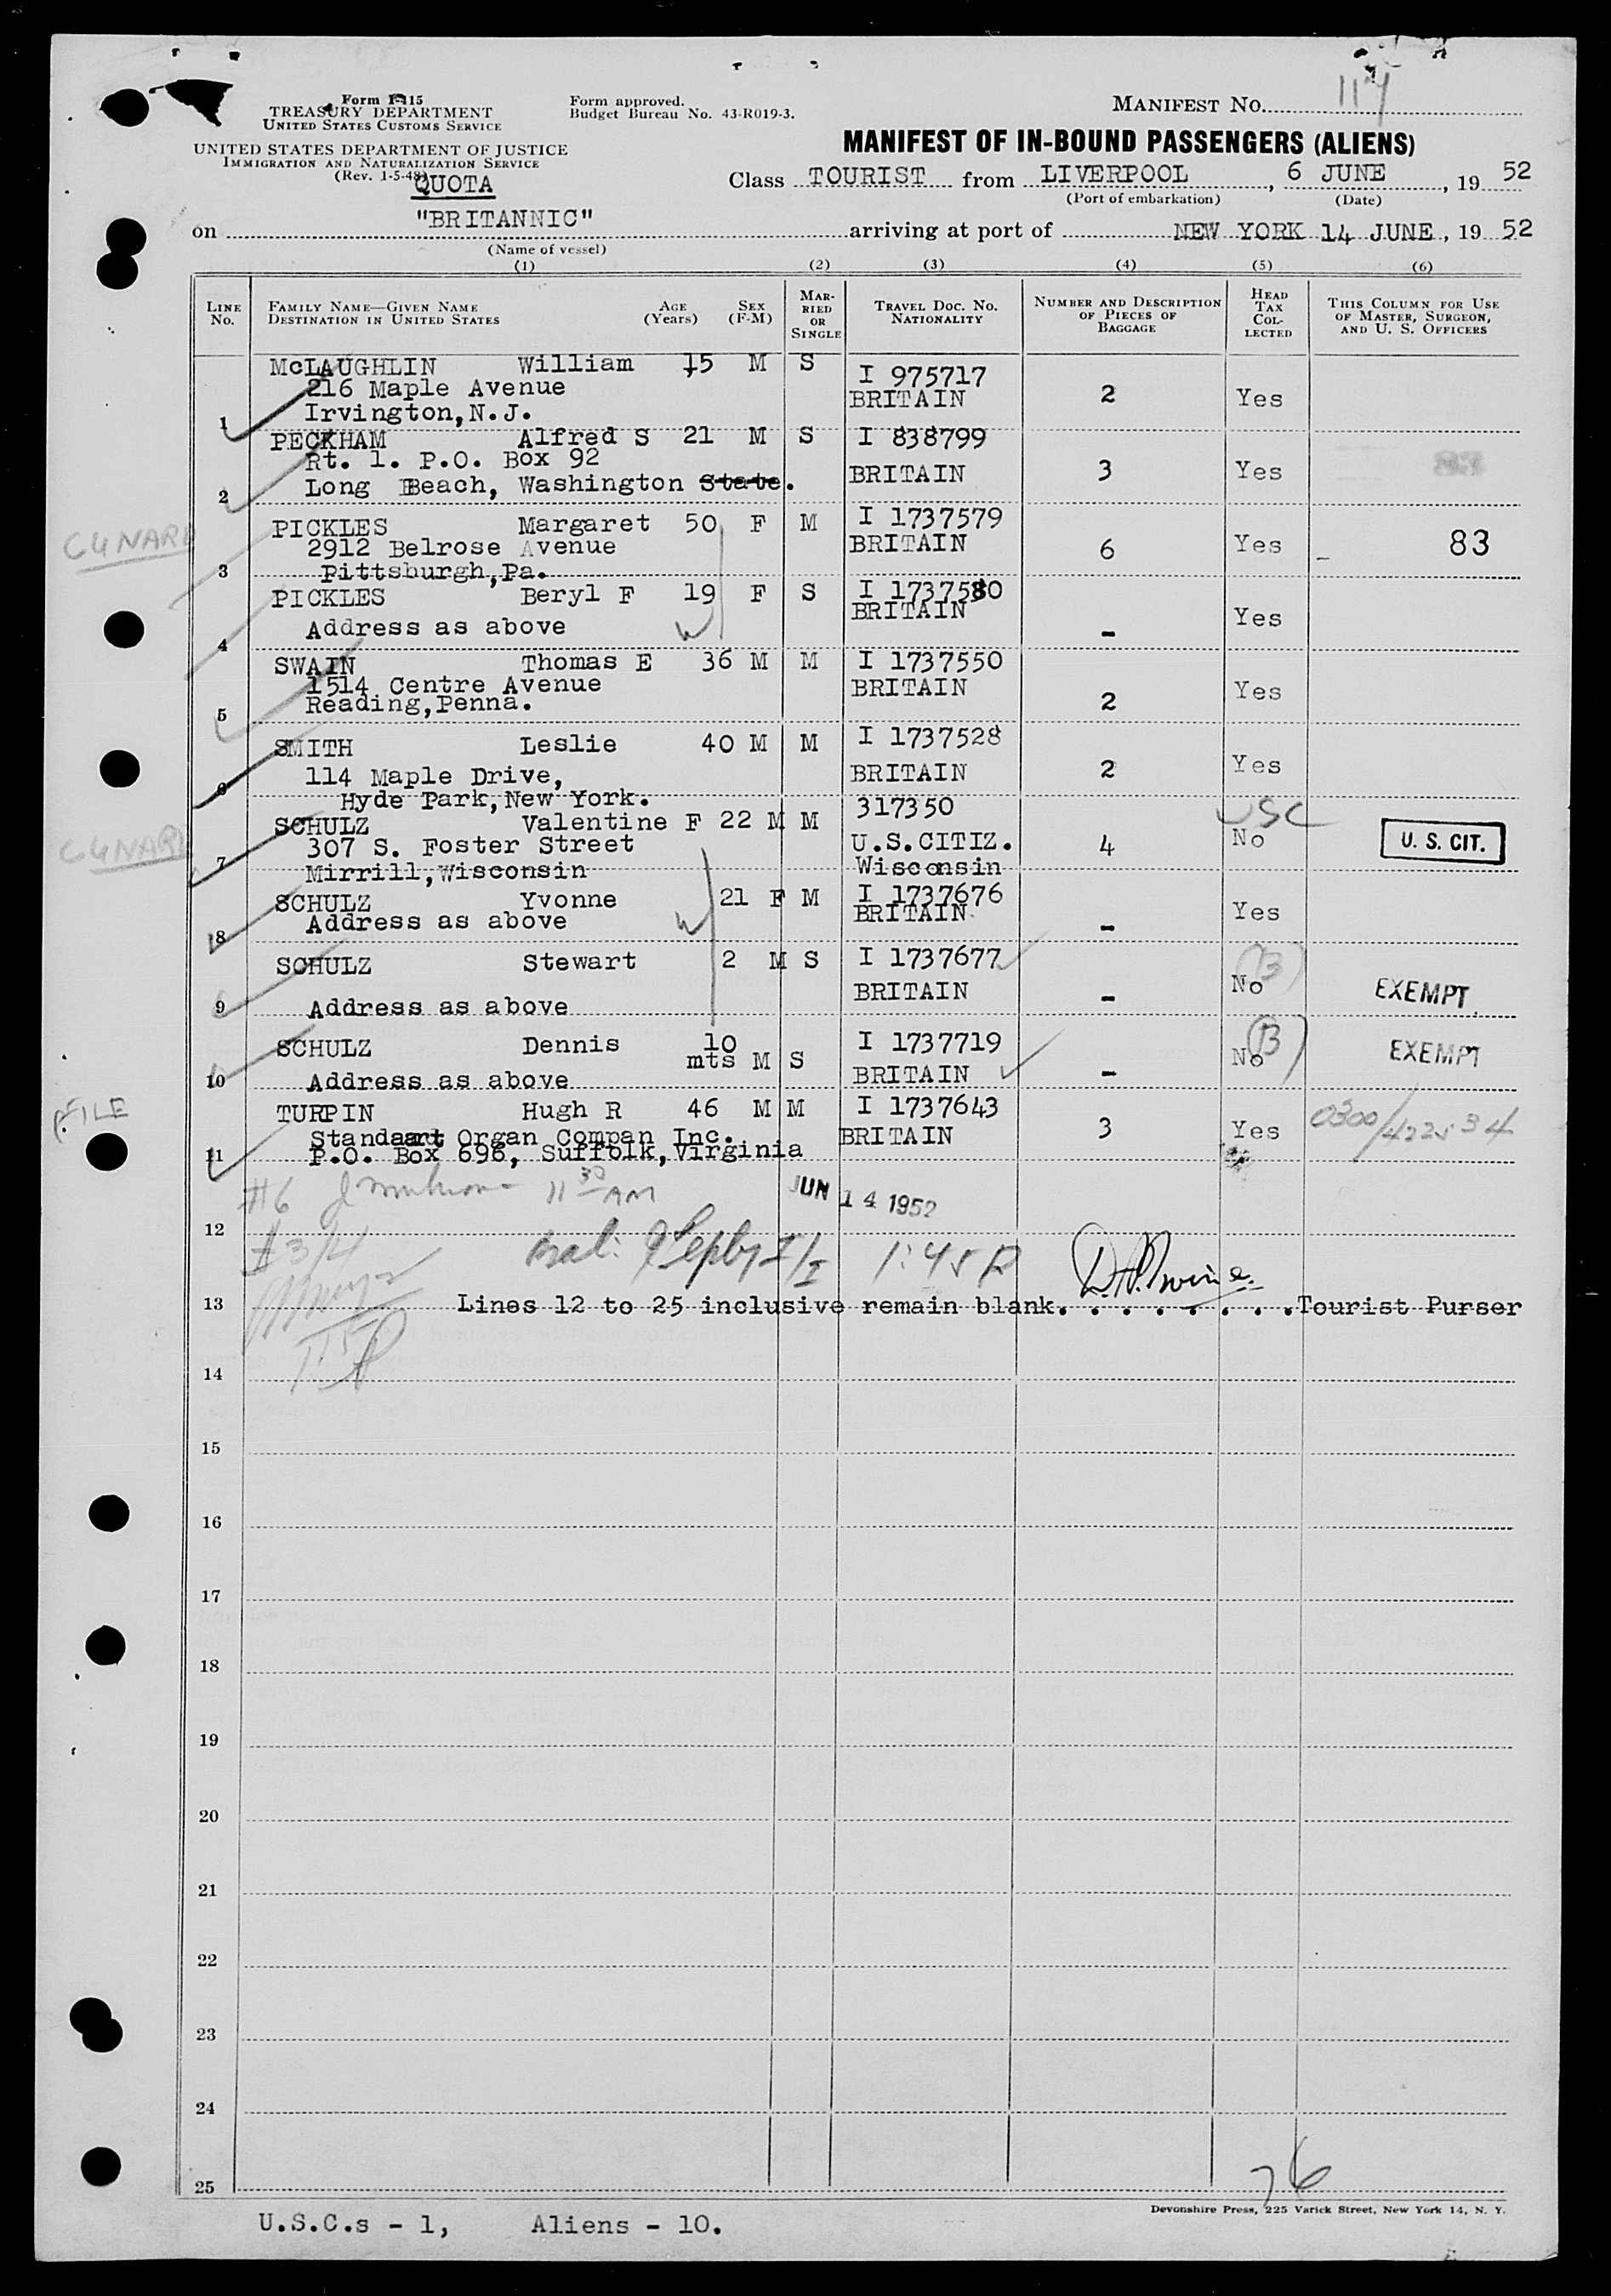 Form I-415
TREASURY DEPARTMENT
UNITED STATES CUSTOMS SERVICE
UNITED STATES DEPARTMENT OF JUSTICE
IMMIGRATION AND NATURALIZATION SERVICE
(Rev. 1-5-48)
QUOTA
Form approved.
Budget Bureau No. 43-R019-3.
MANIFEST NO. 117
MANIFEST OF IN-BOUND PASSENGERS (ALIENS)
Class TOURIST from LIVERPOOL, 6 JUNE, 19 52
(Port of embarkation) (Date)
on "BRITANNIC" arriving at port of NEW YORK 14 JUNE, 19 52
(Name of vessel)
(1) (2) (3) (4) (5) (6)
LINE No. FAMILY NAME—GIVEN NAME DESTINATION IN UNITED STATES AGE (Years) SEX (F-M) MARRIED OR SINGLE TRAVEL DOC. NO. NATIONALITY NUMBER AND DESCRIPTION OF PIECES OF BAGGAGE HEAD TAX COLLECTED THIS COLUMN FOR USE OF MASTER, SURGEON, AND U. S. OFFICERS
McLAUGHLIN William 15 M S I 975717
216 Maple Avenue BRITAIN 2 Yes
1 Irvington,N.J.
PECKHAM Alfred S 21 M S I 838799
Rt. 1. P.O. Box 92 BRITAIN 3 Yes
2 Long Beach, Washington State.
CUNARD
PICKLES Margaret 50 F M I 1737579
2912 Belrose Avenue BRITAIN 6 Yes – 83
3 Pittsburgh,Pa.
PICKLES Beryl F 19 F S I 1737580
4 Address as above BRITAIN - Yes
SWAIN Thomas E 36 M M I 1737550
1514 Centre Avenue BRITAIN 2 Yes
5 Reading,Penna.
SMITH Leslie 40 M M I 1737528
114 Maple Drive, BRITAIN 2 Yes
6 Hyde Park,New York.
CUNARD
SCHULZ Valentine F 22 M M 317350 USC
307 S. Foster Street U.S.CITIZ. 4 No U. S. CIT.
7 Mirrill,Wisconsin Wisconsin
SCHULZ Yvonne 21 F M I 1737676
8 Address as above BRITAIN - Yes
SCHULZ Stewart 2 M S I 1737677
9 Address as above BRITAIN - No (B) EXEMPT
SCHULZ Dennis 10 mts M S I 1737719
10 Address as above BRITAIN - No (B) EXEMPT
FILE
TURPIN Hugh R 46 M M I 1737643
Standaart Organ Compan Inc. BRITAIN 3 Yes 0300/422534
11 P.O. Box 696, Suffolk,Virginia
#6 11 30 AM JUN 14 1952
12
#3/4 1:45 P
13 Lines 12 to 25 inclusive remain blank. . . . . . . .Tourist Purser
1:15 P
14
15
16
17
18
19
20
21
22
23
24
25
76
Devonshire Press, 225 Varick Street, New York 14, N. Y.
U.S.C.s - 1, Aliens - 10.